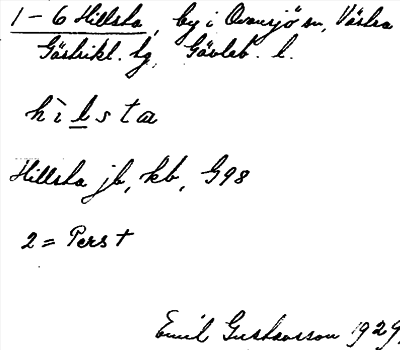 1-6 Hillsta, by i Ovansjö sn, Västra
Gästrikl. hg, Gävleb. l.
hìlsta
Hillsta jb, kb, G98
2 = Perst
Emil Gustavsson 1929.